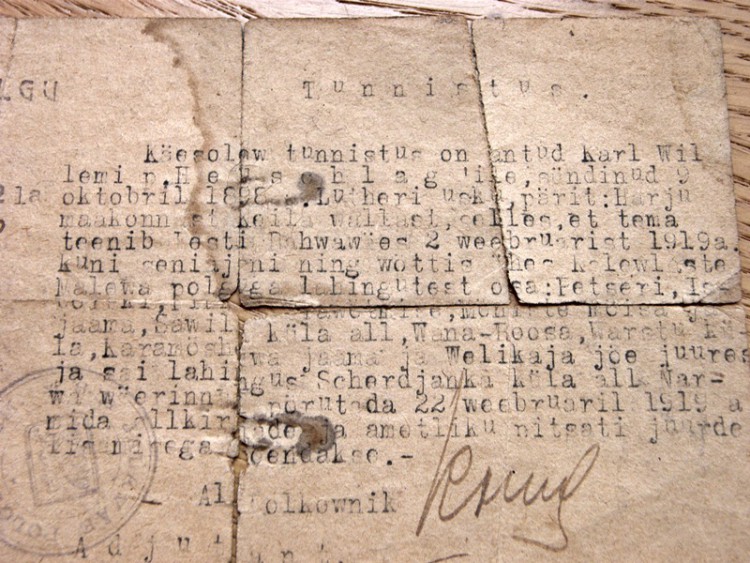 LGU
Tunnistus.
Käesolew tunnistus on antud Karl Wil
lemi p. Heuschlag'ile, sündinud 9
oktobril 1898 a. Lutheri usku, pärit: Harju
maakonnast Keila wallast, selles, et tema
teenib Eesti Rahwawäes 2 weebruarist 1919a.
kuni seniajani ning wõttis ühes Kalewlaste
Malewa polguga lahingutest osa: Petseri, Is-
Mõniste mõisa ja
jaama, Sawil küla all, Wana-Roosa, Warstu kü-
la, Karamõsh wa jaama ja Welikaja jõe juures
ja sai lahingus Scherdjanka küla all Nar-
wa wäerinnal põrutada 22 weebruaril 1919 a
mida allkirjade ja ametliku pitsati juurde
lisamisega tõendakse.-
Al polkownik
Adjutant.